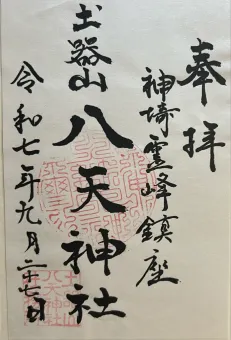 奉拝
神埼霊峰鎮座
土器山八天神社
令和七年九月二十七日